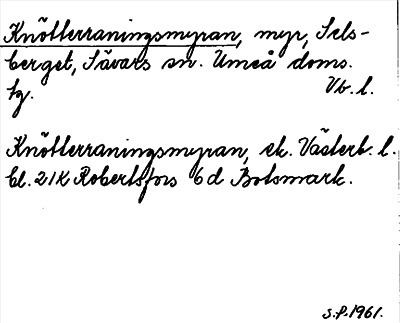 Knötterraningsmyran, myr, Sels-
berget, Sävars sn. Umeå doms.
tg. Vb. l.
Knötterraningsmyran, ek. Västerb. l.
bl. 21K Robertsfors 6d Botsmark.
S.P. 1961.